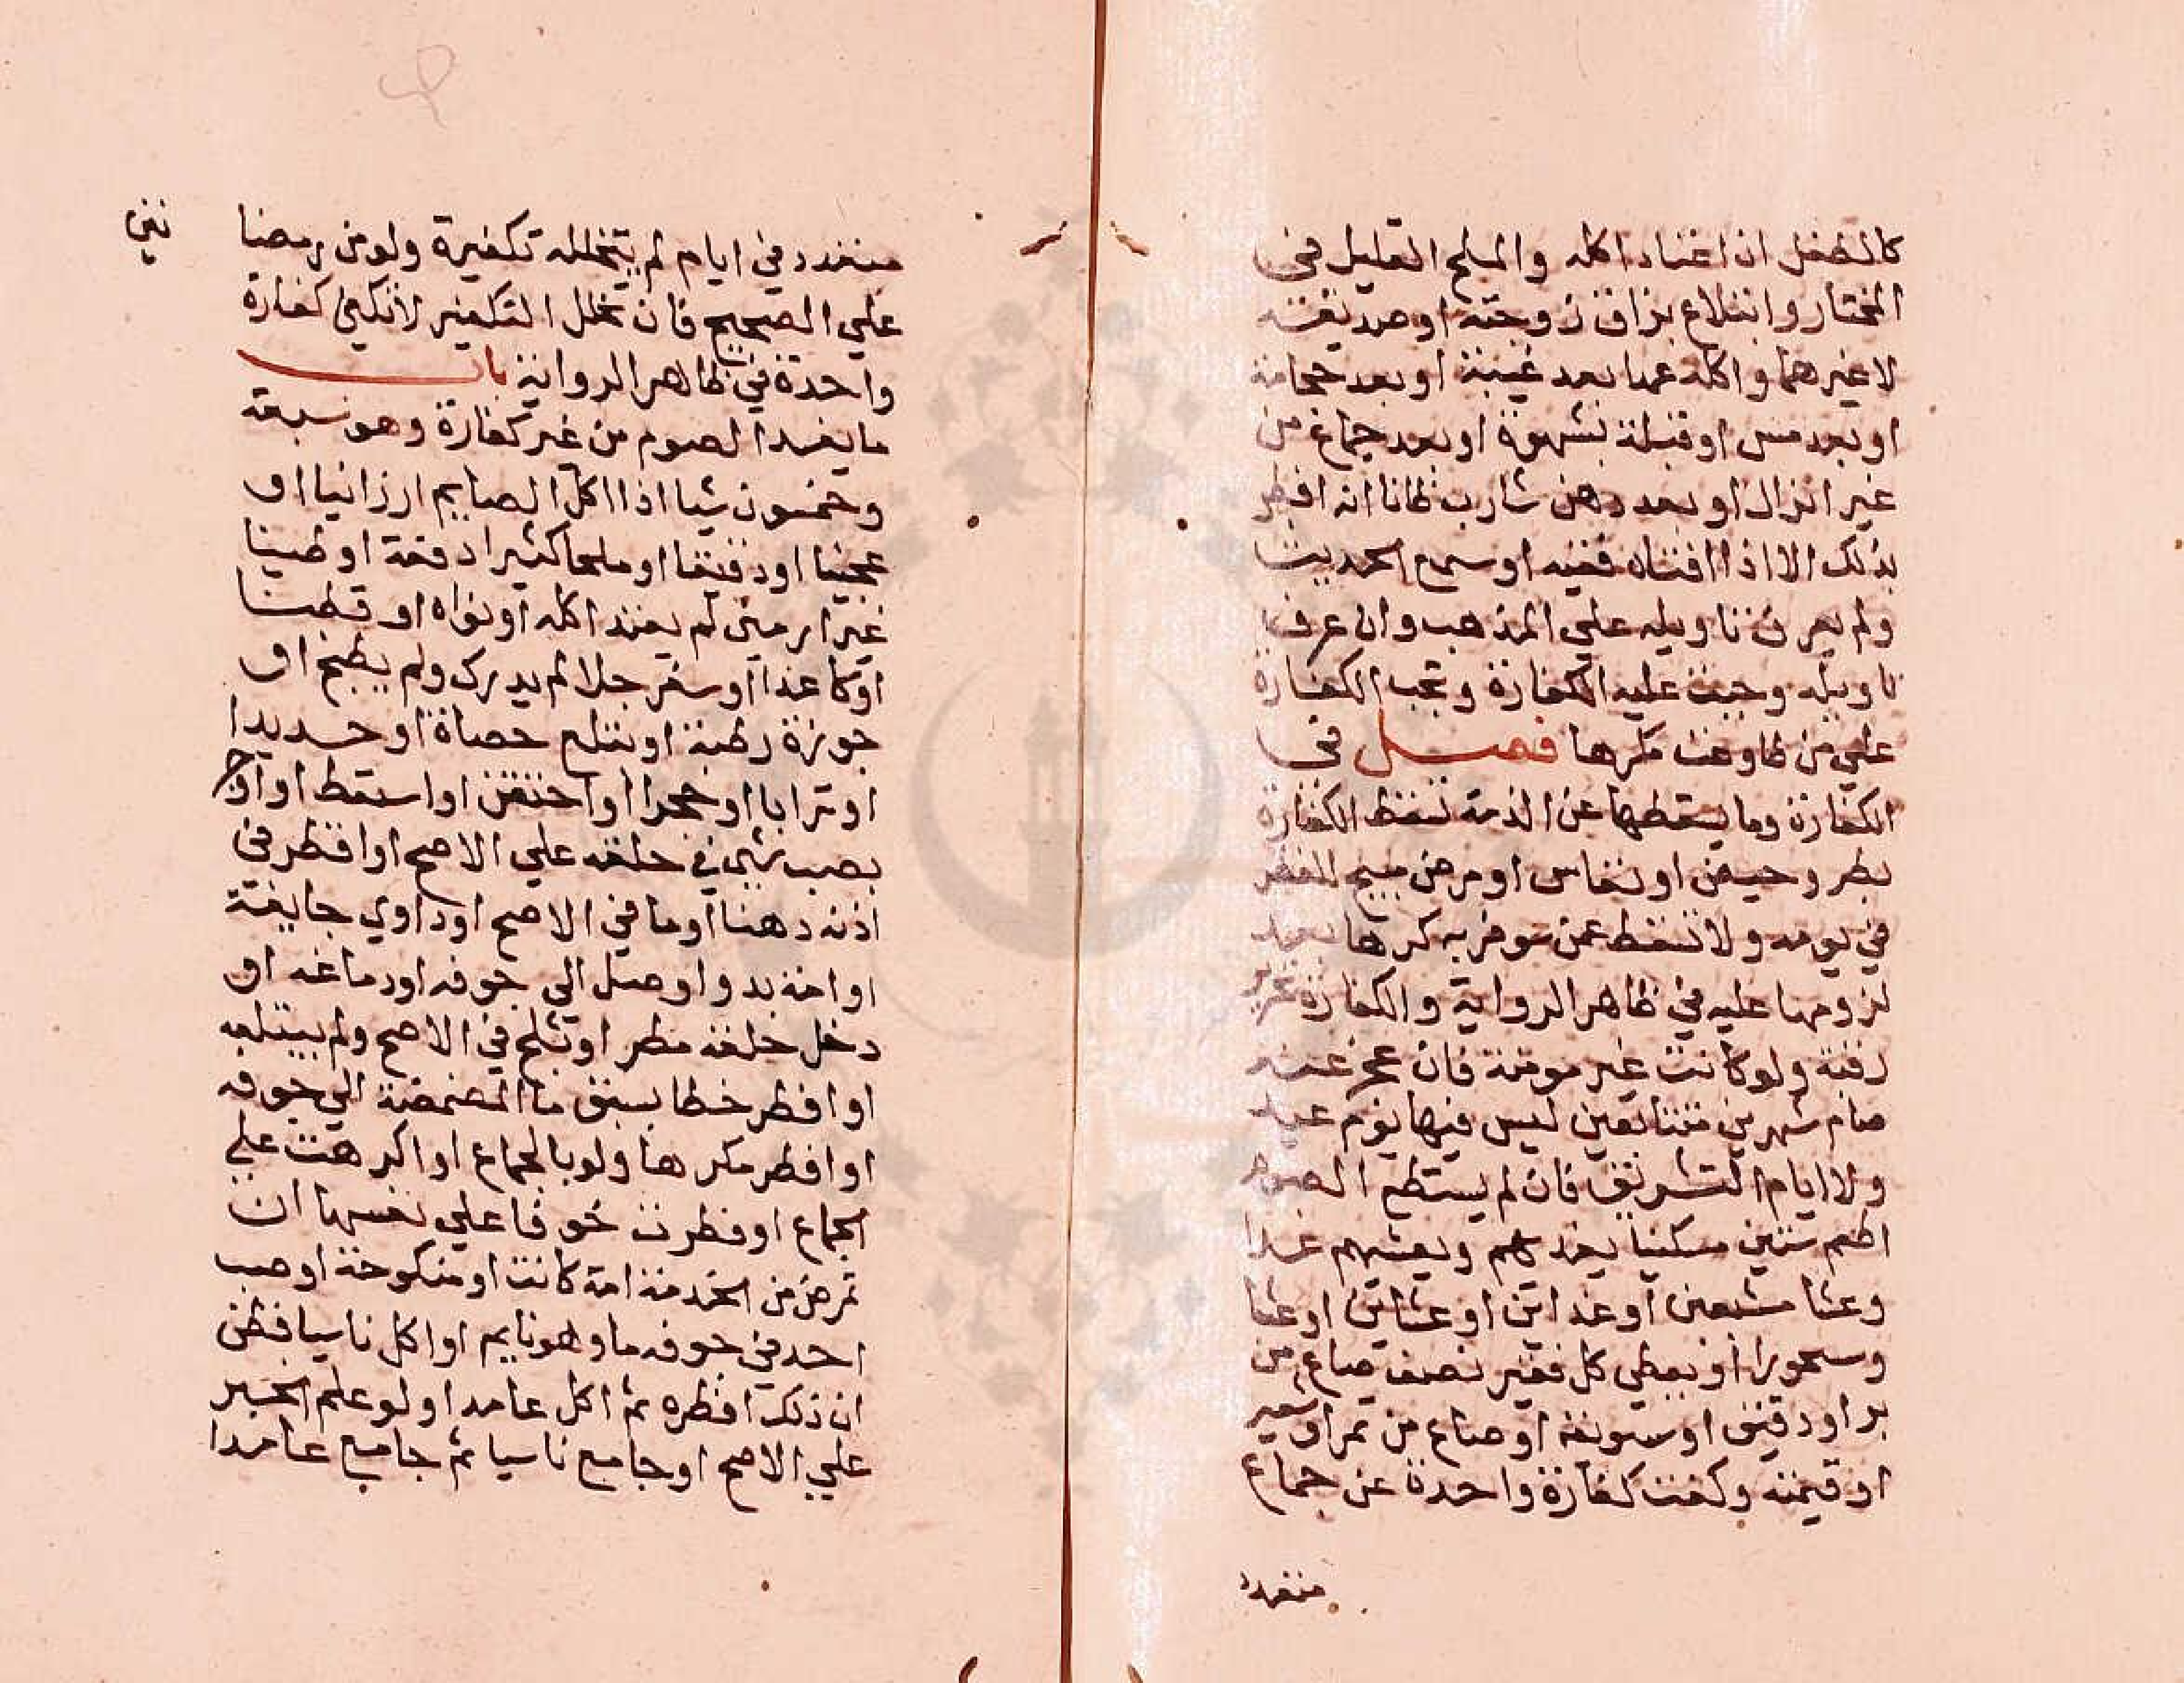 كالطفل ان اعتاد اكله والملح القليل في
المختار وابتلاع بزاق زوجته او صديقه
لا غيرهما واكله عمدا بعد غيبة او بعد حجامة
او بعد مس او قبلة بشهوة او بعد جماع من
غير انزال او بعد دهن شارب ظانا انه افطر
بذلك الا اذا افتاه فقيه او سمع الحديث
ولم يعرف تاويله علي المذهب وان عرف
تاويله وجبت عليه الكفارة وتجب الكفارة
علي من طاوعت مكرها فصل في
الكفارة وما يسقطها عن الذمة تسقط الكفارة
بطرو حيض او نفاس او مرض مبيح للفطر
في يومه ولا تسقط عمن سوفر به كرها بعد
لزومها عليه في ظاهر الرواية والكفارة تحرير
رقبة ولو كانت غير مومنة فان عجز عنه
صام شهرين متتابعين ليس فيها يوم عيد
ولا ايام التشريق فان لم يستطع الصوم
اطعم ستين مسكينا يغديهم ويعشيهم غدا
وعشا مشبعين او غداين او عشاين او عشا
وسحورا او يعطي كل فقير نصف صاع من
بر او دقيق او سويقه او صاع من تمر او شعير
او قيمته وكفت كفارة واحدة عن جماع
متعدد
متعدد في ايام لم يتخلله تكفيرة ولو من رمضا
نين
علي الصحيح فان تخلل التكفير لا تكفي كفارة
واحدة في ظاهر الرواية باب
ما يفسد الصوم من غير كفارة وهو سبعة
وخمسون شيا اذا اكل الصايم ارزا نيا او
عجينا او دقيقا او ملحا كثيرا دفعة او طينا
غير ارميني لم يعتد اكله او نواه او قطنا
او كاغدا او سفرجلا لم يدرك ولم يطبخ او
جوزة رطبة او ابتلع حصاة او حديدا
او ترابا او حجرا او احتقن او استعط او اوجر
بصب شي في حلقه علي الاصح او اقطر في
اذنه دهنا او ما في الاصح او داوي جايفة
او امة بدوا وصل الي جوفه او دماغه او
دخل حلقه مطر او ثلج في الاصح ولم يبتلعه
او افطر خطا بسبق ما المضمضة الي جوفه
او افطر مكرها ولو بالجماع او اكرهت علي
الجماع او فطرت خوفا علي نفسها ان
تمرض من الخدمة امة كانت او منكوحة او صب
احد في جوفه ما وهو نايم او اكل ناسيا فظن
ان ذلك افطره ثم اكل عامدا ولو علم الخبر
علي الاصح او جامع ناسيا ثم جامع عامدا